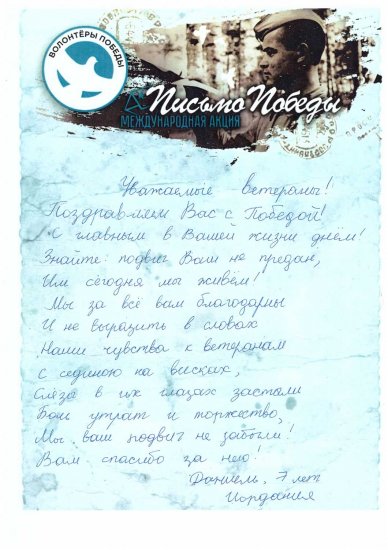 ВОЛОНТЁРЫ ПОБЕДЫ
Письмо Победы
МЕЖДУНАРОДНАЯ АКЦИЯ
Уважаемые ветераны!
Поздравляем Вас с Победой!
С главным в Вашей жизни днём!
Знайте: подвиг Вам не предан,
Им сегодня мы живём!
Мы за всё вам благодарны
И не выразить в словах
Наши чувства к ветеранам
С сединою на висках,
Слёза в их глазах застыли
Боль утрат и торжество,
Мы ваш подвиг не забыли!
Вам спасибо за него!
Даниель, 7 лет
Иордания